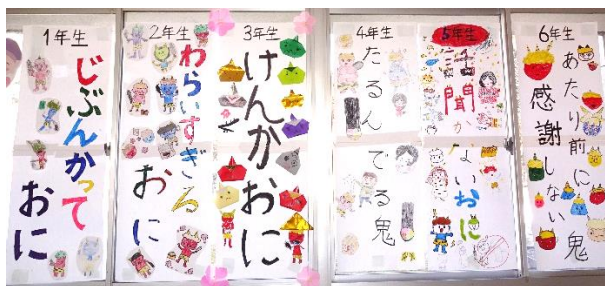 1年生
じぶんかって
おに
2年生
わらいすぎる
おに
3年生
けんかおに
4年生
たるんでる鬼
5年生
話聞かないおに
6年生
あたり前に
感謝しない鬼